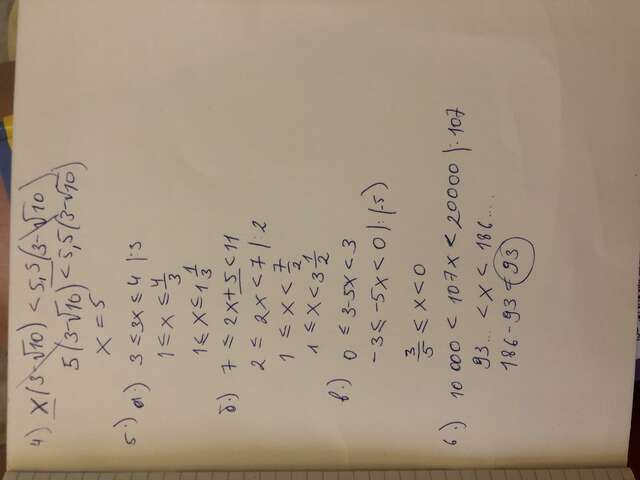 4) x(3-√10) < 5,5(3-√10)
5(3-√10) < 5,5(3-√10)
x = 5
5.) a.) 3 ≤ 3x ≤ 4 |:3
1 ≤ x ≤ 4/3
1 ≤ x ≤ 1 1/3
б.) 7 ≤ 2x+5 < 11
2 ≤ 2x < 7 |:2
1 ≤ x < 7/2
1 ≤ x < 3 1/2
в.) 0 ≤ 3-5x < 3
-3 ≤ -5x < 0 |:(-5)
3/5 ≤ x < 0
6.) 10 000 < 107x < 20000 |:107
93... < x < 186....
186-93 = 93